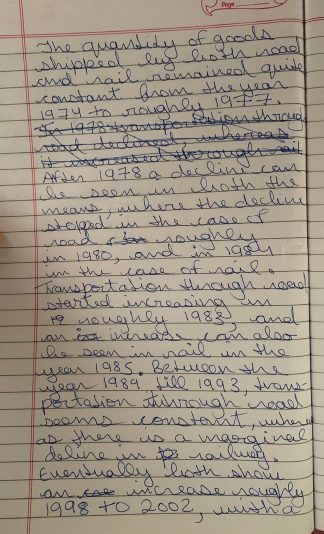 Page
The quantity of goods
shipped by both road
and rail remained quite
constant from the year
1974 to roughly 1977.
In 1978 transportation through
road declined, whereas
it increased through rail
After 1978 a decline can
be seen in both the
means, where the decline
stopped in the case of
road roughly
in 1980, and in 1984
in the case of rail.
Transportation through road
started increasing in
roughly 1983, and
an increase can also
be seen in rail in the
year 1985. Between the
year 1989 till 1993, trans-
portation through road
seems constant, where
as there is a marginal
decline in railway.
Eventually both show
an increase roughly
1998 to 2002, with a